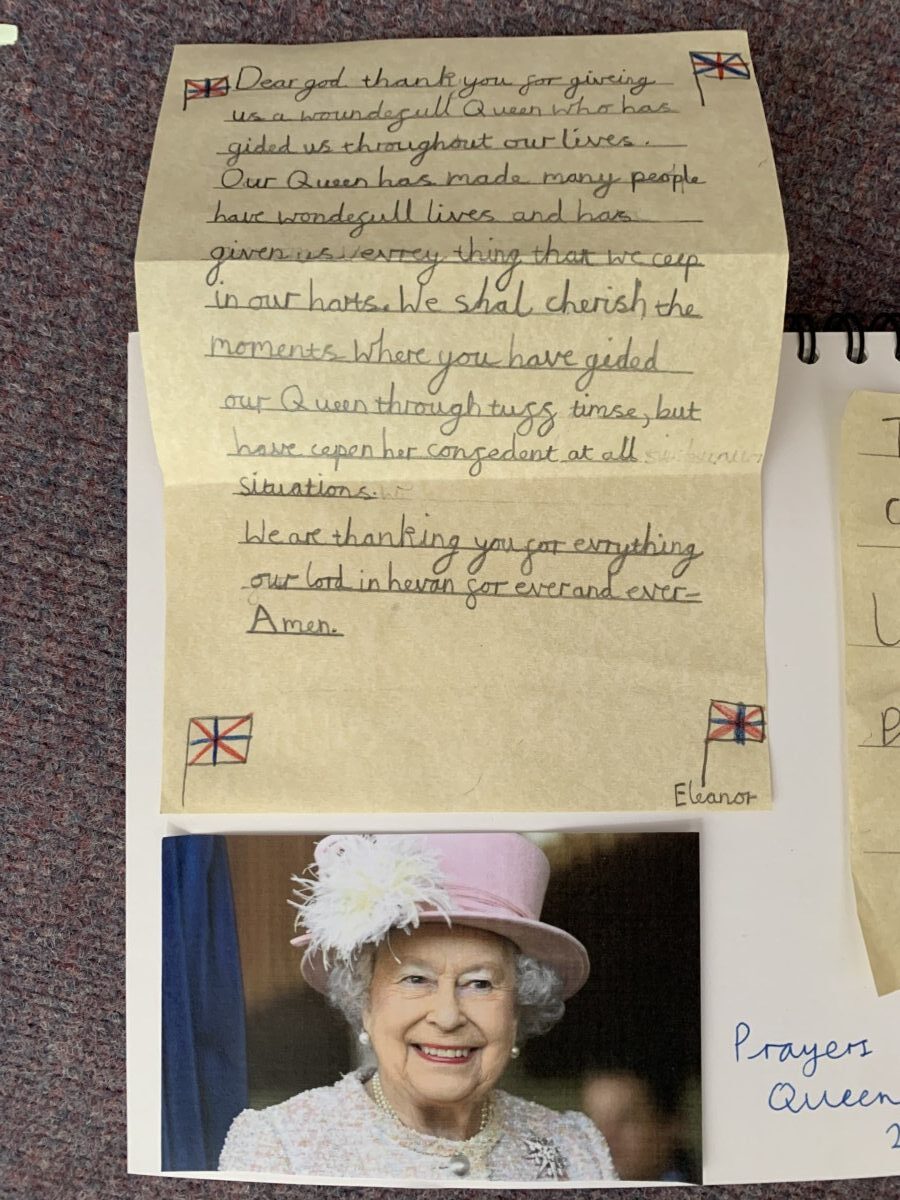 Dear god thank you for giveing
us a woundefull Queen who has
gided us throughout our lives.
Our Queen has made many people
have wondefull lives and has
given us evrey thing that we ceep
in our harts. We shal cherish the
moments Where you have gided
our Queen through tuff timse, but
have cepen her confedent at all
situations.
We are thanking you for evrything
our lord in hevan for ever and ever-
Amen.
Eleanor
Prayers
Queen
2